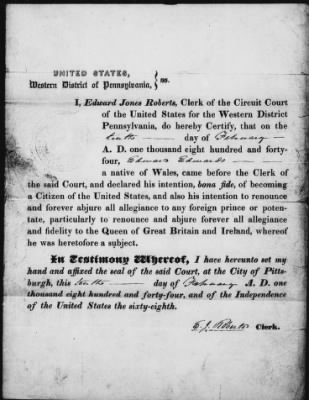 UNITED STATES,
Western District of Pennsylvania, } ss.
I, Edward Jones Roberts, Clerk of the Circuit Court
of the United States for the Western District
Pennsylvania, do hereby Certify, that on the
tenth day of February
A. D. one thousand eight hundred and forty-
four, Edward Edwards
a native of Wales, came before the Clerk of
the said Court, and declared his intention, bona fide, of becoming
a Citizen of the United States, and also his intention to renounce
and forever abjure all allegiance to any foreign prince or poten-
tate, particularly to renounce and abjure forever all allegiance
and fidelity to the Queen of Great Britain and Ireland, whereof
he was heretofore a subject.
In Testimony Whereof, I have hereunto set my
hand and affixed the seal of the said Court, at the City of Pitts-
burgh, this tenth day of February A. D. one
thousand eight hundred and forty-four, and of the Independence
of the United States the sixty-eighth.
E. J. Roberts Clerk.